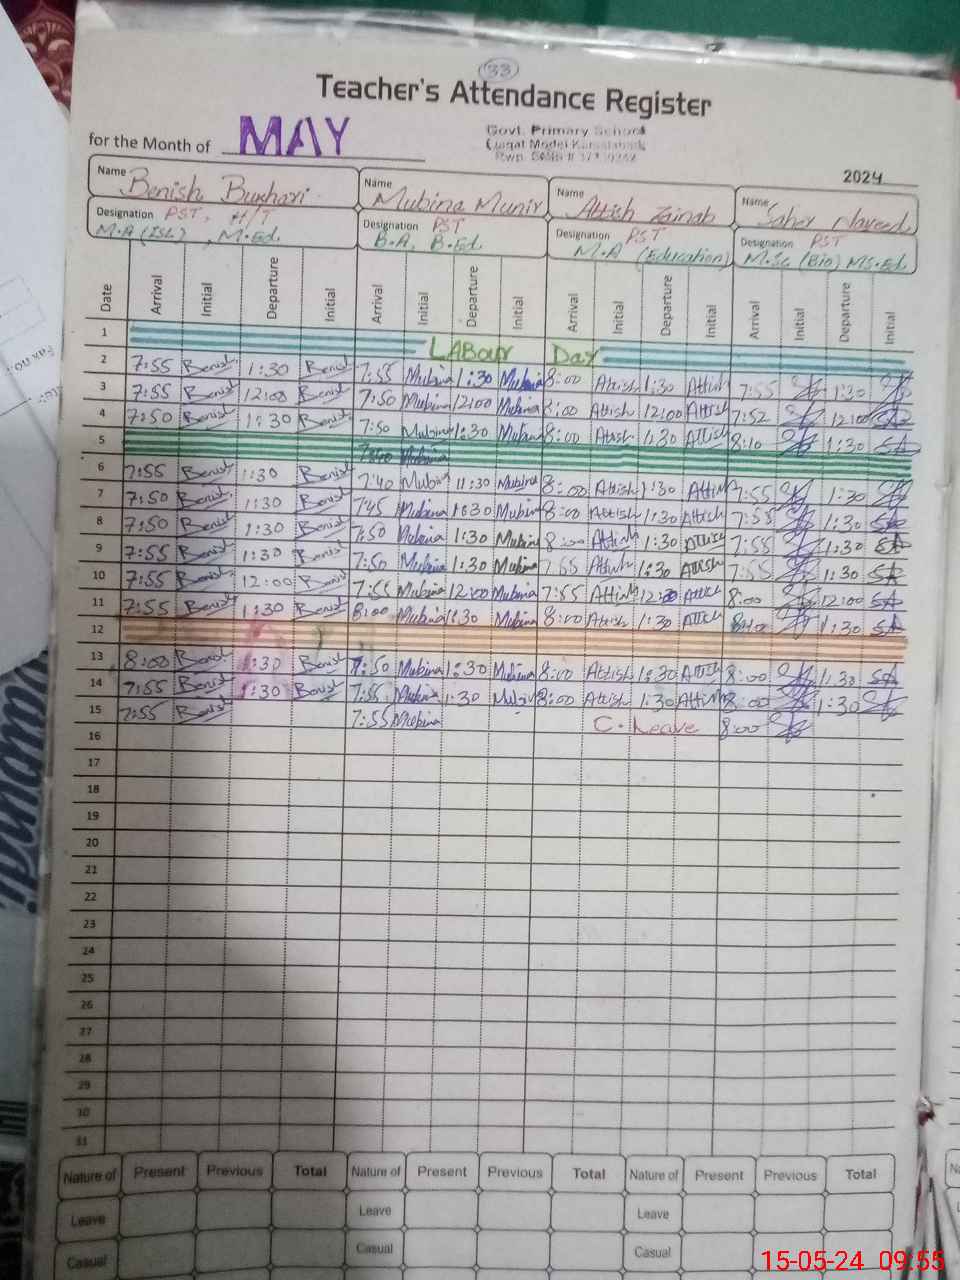 33
Teacher's Attendance Register
for the Month of MAY
Govt. Primary School
2024
Name Benish Bukhari Name Mubina Munir Name Attish Zainab Name Saher Naveed
Designation PST, H/T Designation PST Designation PST Designation PST
M.A (ISL), M.Ed. B.A, B.Ed M.A (Education) M.Sc (Bio) MS.Ed
Date Arrival Initial Departure Initial Arrival Initial Departure Initial Arrival Initial Departure Initial Arrival Initial Departure Initial
1 LABour Day
2 7:55 Benish 1:30 Benish 7:55 Mubina 1:30 Mubina 8:00 Attish 1:30 Attish 7:55 1:30
3 7:55 Benish 12:00 Benish 7:50 Mubina 12:00 Mubina 8:00 Attish 12:00 Attish 7:52 12:00
4 7:50 Benish 1:30 Benish 7:50 Mubina 1:30 Mubina 8:00 Attish 1:30 Attish 8:10 1:30
5
6 7:55 Benish 1:30 Benish 7:40 Mubina 11:30 Mubina 8:00 Attish 1:30 Attish 7:55 1:30
7 7:50 Benish 1:30 Benish 7:45 Mubina 1:30 Mubina 8:00 Attish 1:30 Attish 7:55 1:30
8 7:50 Benish 1:30 Benish 7:50 Mubina 1:30 Mubina 8:00 Attish 1:30 Attish 7:55 1:30
9 7:55 Benish 1:30 Benish 7:50 Mubina 1:30 Mubina 7:55 Attish 1:30 Attish 7:55 1:30
10 7:55 Benish 12:00 Benish 7:55 Mubina 12:00 Mubina 7:55 Attish 12:00 Attish 8:00 12:00
11 7:55 Benish 1:30 Benish 8:00 Mubina 1:30 Mubina 8:00 Attish 1:30 Attish 1:30
12
13 8:00 Benish 1:30 Benish 7:50 Mubina 1:30 Mubina 8:00 Attish 1:30 Attish 8:00 1:30
14 7:55 Benish 1:30 Benish 7:55 Mubina 1:30 Mubina 8:00 Attish 1:30 Attish 8:00 1:30
15 7:55 Benish 7:55 Mubina C. Leave 8:00
16
17
18
19
20
21
22
23
24
25
26
27
28
29
30
31
Nature of Present Previous Total Nature of Present Previous Total Nature of Present Previous Total
Leave Leave Leave
Casual Casual Casual
15-05-24 09:55